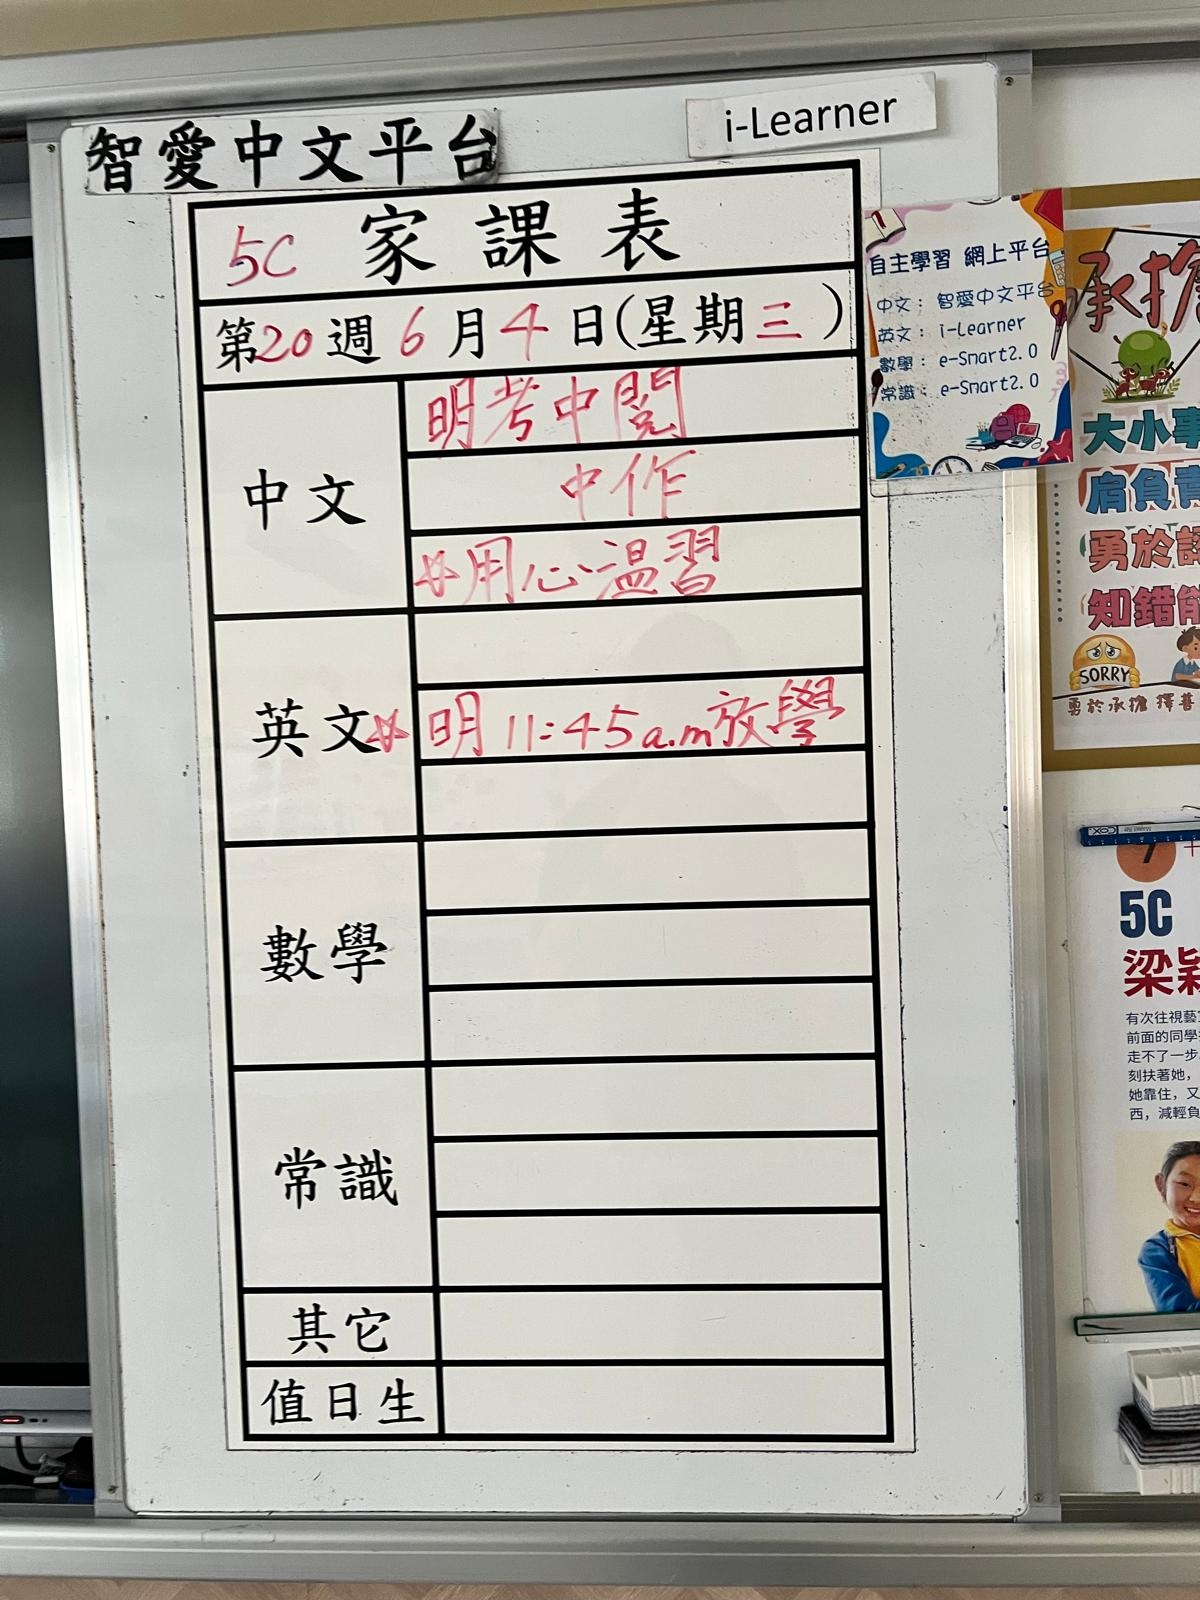 智愛中文平台
i-Learner
5C 家課表
第20週6月4日(星期三)
中文
明考中閱
中作
☆用心溫習
英文
☆明11:45a.m放學
數學
常識
其它
值日生
自主學習 網上平台
中文：智愛中文平台
英文：i-Learner
數學：e-Smart2.0
常識：e-Smart2.0
承擔
大小事
肩負責
勇於
知錯能
SORRY
勇於承擔 擇善
5C
梁穎
有次往視藝
前面的同學
走不了一步
刻扶著她，
她靠住，又
西，減輕負